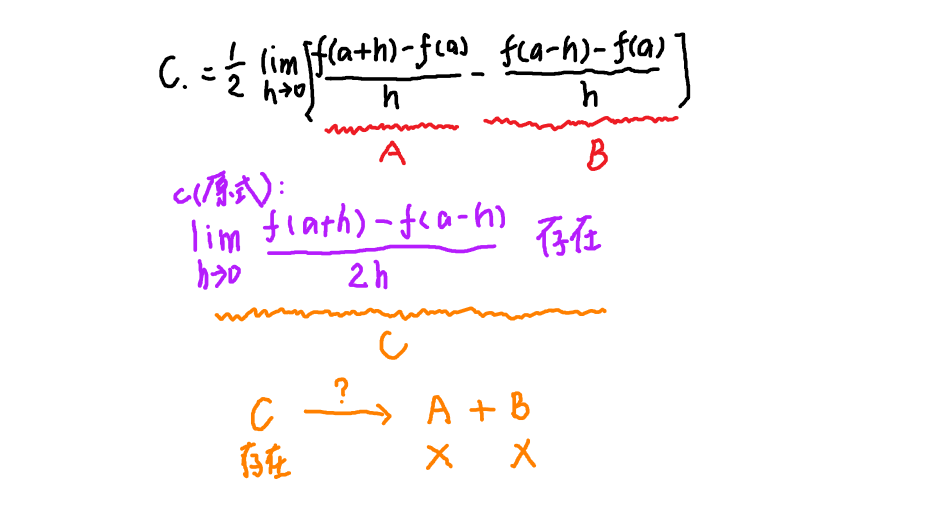 C. = 1/2 lim h→0 [ (f(a+h)-f(a))/h - (f(a-h)-f(a))/h ]
A B
c(原式):
lim h→0 (f(a+h)-f(a-h))/2h 存在
C
C →? A + B
存在 × ×